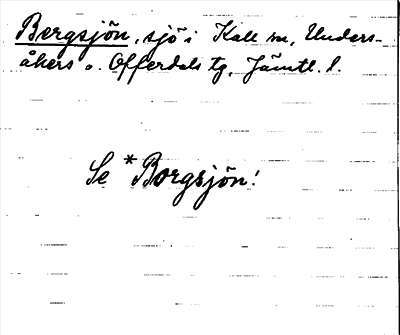 Bergsjön, sjö i Kall sn, Unders-
åkers o. Offerdals tg, Jämtl. l.
Se *Borgsjön!